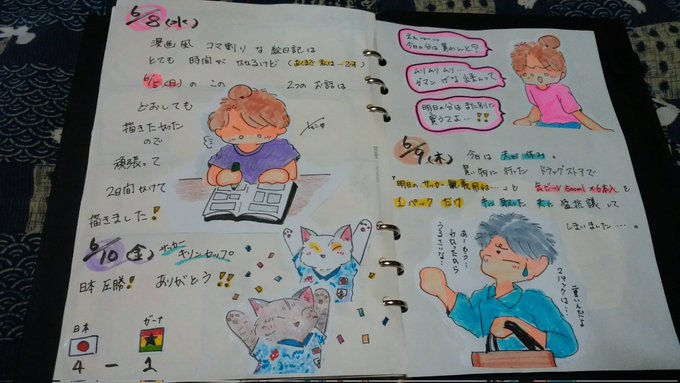 6/8(水)
漫画風 コマ割り な 絵日記は
とても 時間が かかるけど (あくまで 私は…です)
6/5(日) の この 2つの お話は
どおしても
描きたかった
ので
頑張って
2日間かけて
描きました!
6/10(金) サッカー
キリンカップ
日本圧勝! ありがとう!!
日本 ガーナ
4 - 1
今日の分は買わんと?
ムリムリムリ…
明日の分はまた別に
買うてよ…!!
6/9(木) 今日は 夫が休み。
買い物に行った ドラッグストアで
明日のサッカー観戦用は…と 缶ビール500ml×6本入を
1パック だけ 手に取った 夫に 猛抗議して
しまいました…。
あーもう…
わかったから
うるさいな…
重いんだよ
ストックは…